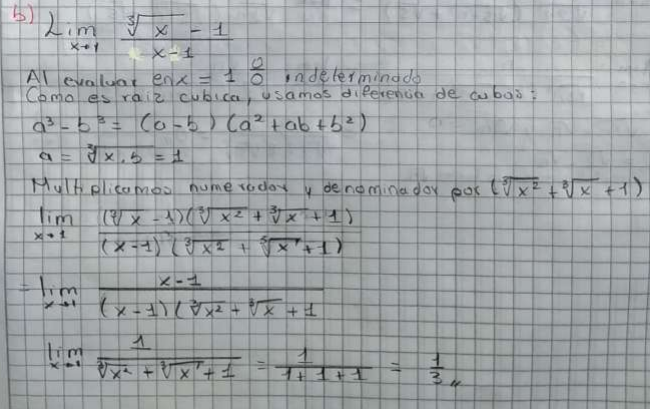 b) Lim x→1 (∛x - 1)/(x-1)
Al evaluar en x = 1 0/0 indeterminado
Como es raiz cubica, usamos diferencia de cubos:
a³ - b³ = (a - b) (a² + ab + b²)
a = ∛x, b = 1
Multiplicamos numerador y denominador por (∛x² + ∛x + 1)
lim x→1 ((∛x - 1)(∛x² + ∛x + 1))/((x-1) (∛x² + ∛x + 1))
= lim x→1 (x-1)/((x-1)(∛x² + ∛x + 1)
lim x→1 1/(∛x² + ∛x + 1) = 1/(1+1+1) = 1/3 〃